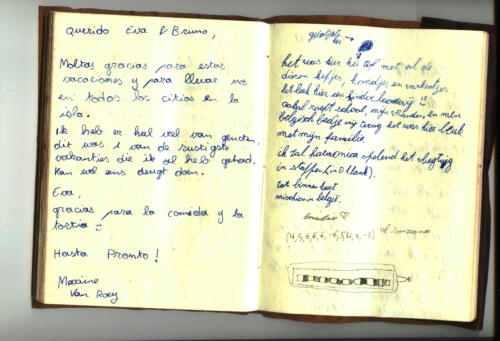 Querido Eva & Bruno,
Moltas gracias para estas
vacaciones y para llevar nos
en todos los citios en la
isla.
Ik heb er heel veel van genoten,
dit was 1 van de rustigste
vakanties die ik al heb gehad.
Kan wel eens deugt doen.
Eva,
gracias para la comida y la
tortia
Hasta Pronto!
Maxime
Van Roey
het was hier tof met al de
kipjes, hondjes en varkentjes
het leek hier een kinderboerderij
school, mijn vrienden, en mijn
belgisch bedje mij terug het was hier leuk
met mijn familie.
ik zal harmonica spelend het vliegtuig
in stappen (in D klank).
tot binnen kort
misschien in belgië.
(4,5,6,6,6,-6,5,4,3,-5)